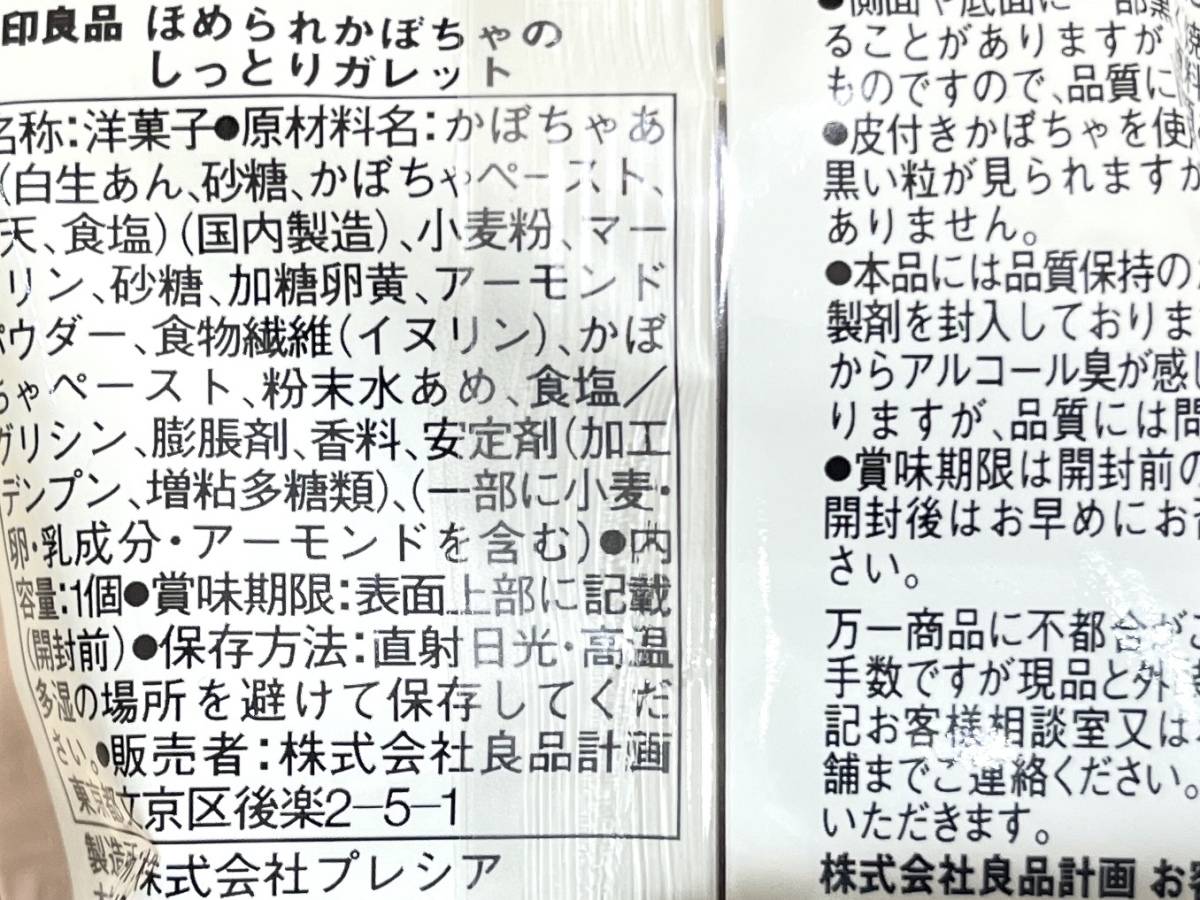 印良品 ほめられかぼちゃの
しっとりガレット
名称:洋菓子●原材料名:かぼちゃあ
(白生あん、砂糖、かぼちゃペースト、
天、食塩)(国内製造)、小麦粉、マー
リン、砂糖、加糖卵黄、アーモンド
パウダー、食物繊維(イヌリン)、かぼ
ちゃペースト、粉末水あめ、食塩/
グリシン、膨脹剤、香料、安定剤(加工
デンプン、増粘多糖類)、(一部に小麦・
卵・乳成分・アーモンドを含む)●内
容量:1個●賞味期限:表面上部に記載
(開封前)●保存方法:直射日光・高温
多湿の場所を避けて保存してくだ
さい。●販売者:株式会社良品計画
東京都文京区後楽2-5-1
製造所
株式会社プレシア
●側面や底面に一部黒
ることがありますが
ものですので、品質に
●皮付きかぼちゃを使
黒い粒が見られますが
ありません。
●本品には品質保持の
製剤を封入しておりま
からアルコール臭が感じ
りますが、品質には問
●賞味期限は開封前の
開封後はお早めにお
さい。
万一商品に不都合が
手数ですが現品と外
記お客様相談室又は
舗までご連絡ください。
いただきます。
株式会社良品計画 お客